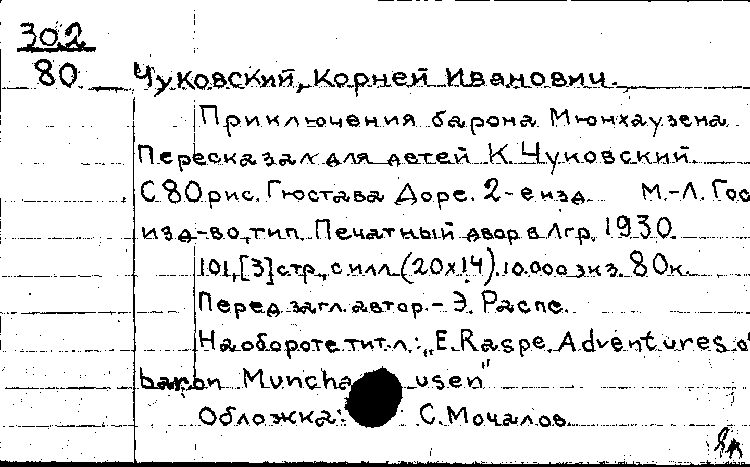 30.2
80
Чуковский, Корней Иванович.
Приключения барона Мюнхаузена
Пересказал для детей К. Чуковский.
С 80 рис. Гюстава Доре. 2-е изд. М.-Л. Гос
изд-во, тип. Печатный двор в Лгр, 1930.
101,[3] стр., с илл. (20х14). 10.000 экз. 80к.
Перед загл. автор.- Э. Распе.
На обороте тит.л.: „E. Raspe. Adventures o
baron Muncha usen"
Обложка: С. Мочалов.